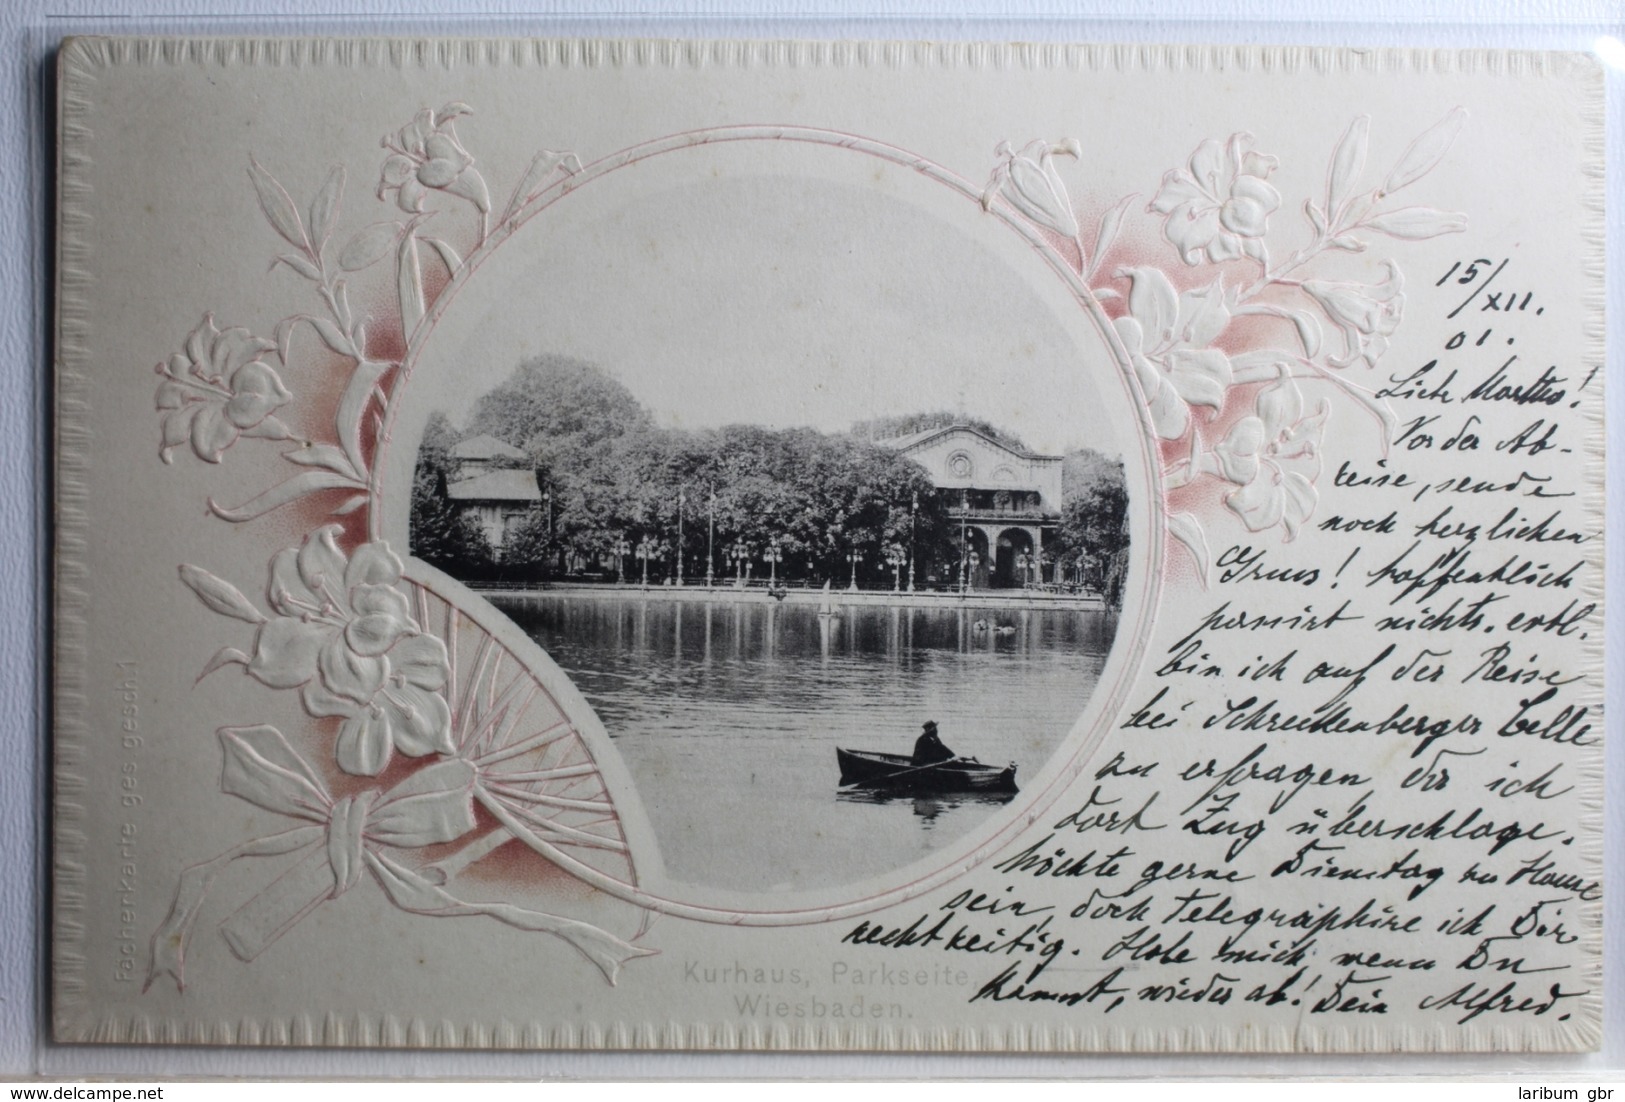 15/XII.
01.
Liebe Martha!
Vor der Ab-
reise, sende
noch herzlichen
Gruss! hoffentlich
passirt nichts. evtl.
bin ich auf der Reise
bei Schreckenberger Celle
zu erfragen, da ich
dort Zug überschlage.
Möchte gerne Dienstag zu Hause
sein, doch telegraphire ich Dir
rechtzeitig. Hole mich, wenn Du
kannst, wieder ab! Dein Alfred.
Kurhaus, Parkseite,
Wiesbaden.
Fächerkarte ges. gesch. 1
laribum gbr